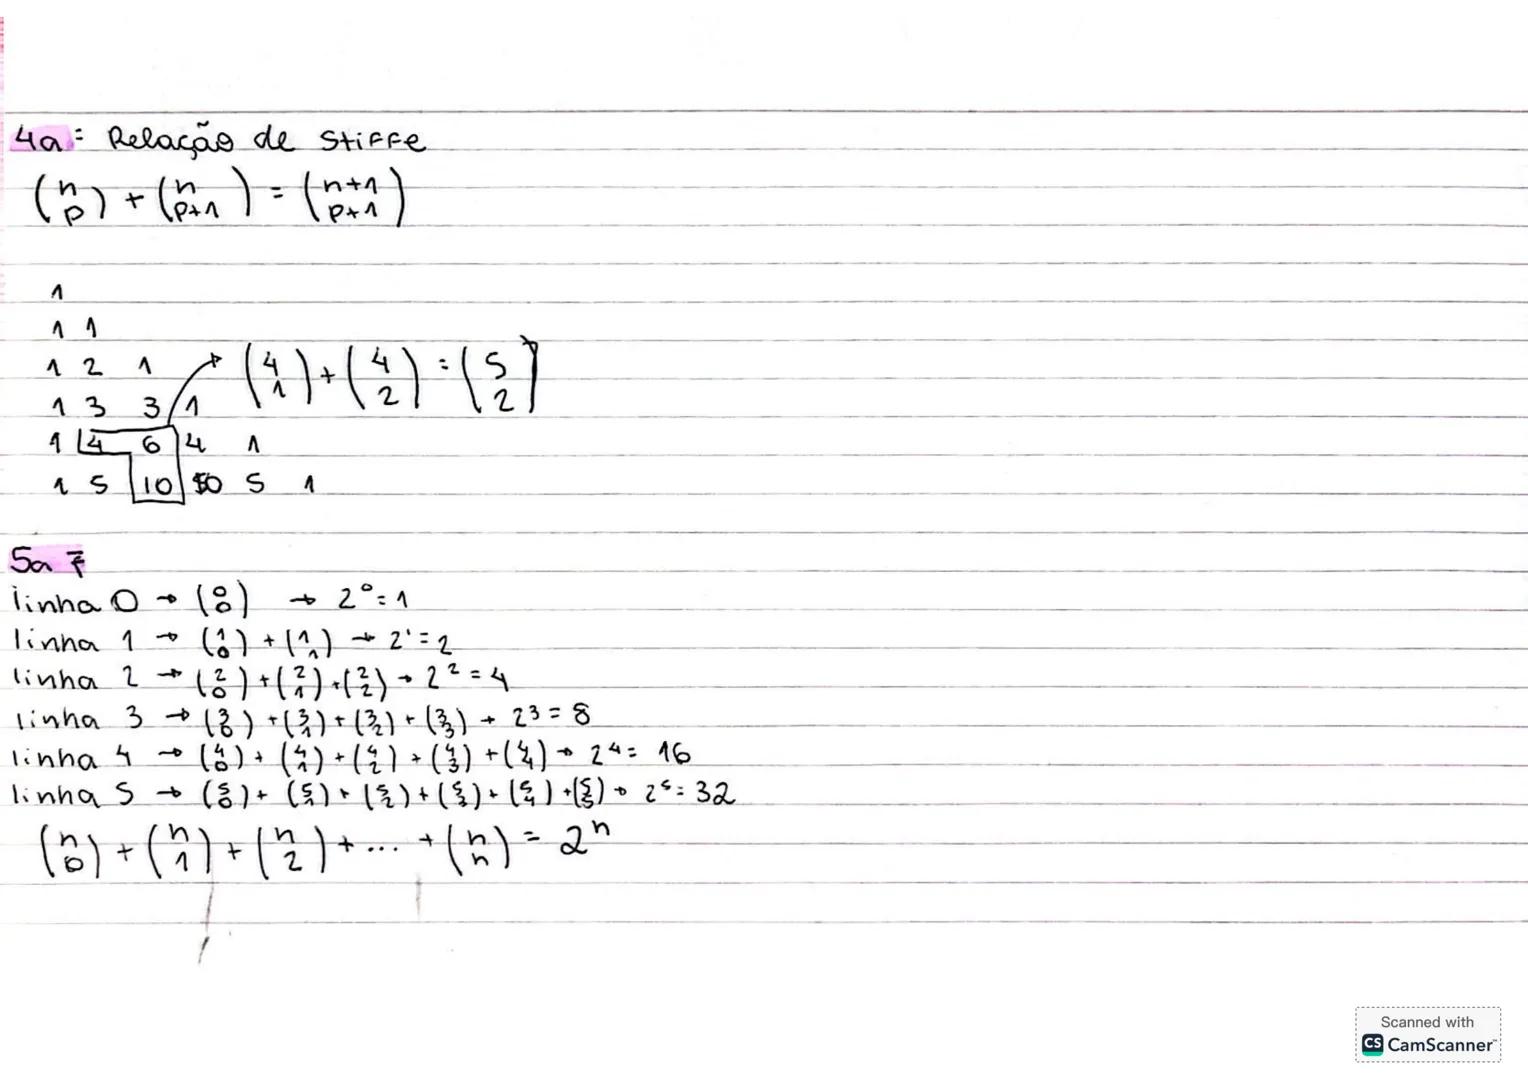 4a: Relação de Stiffe
(n p) + (n p+1) = (n+1 p+1)
1
1 1
1 2 1 → (4 1) + (4 2) = (5 2)
1 3 3 1
1 4 6 4 1
1 5 10 10 5 1
5a:
linha 0 → (0 0) → 2⁰ = 1
linha 1 → (1 0) + (1 1) → 2¹ = 2
linha 2 → (2 0) + (2 1) + (2 2) → 2² = 4
linha 3 → (3 0) + (3 1) + (3 2) + (3 3) → 2³ = 8
linha 4 → (4 0) + (4 1) + (4 2) + (4 3) + (4 4) → 2⁴ = 16
linha 5 → (5 0) + (5 1) + (5 2) + (5 3) + (5 4) + (5 5) → 2⁵ = 32
(n 0) + (n 1) + (n 2) + ... + (n n) = 2ⁿ
Scanned with
CS CamScanner